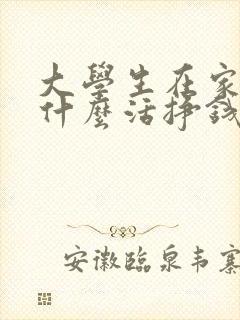 大學生在家
什麼活掙錢
安徽臨泉韦寨